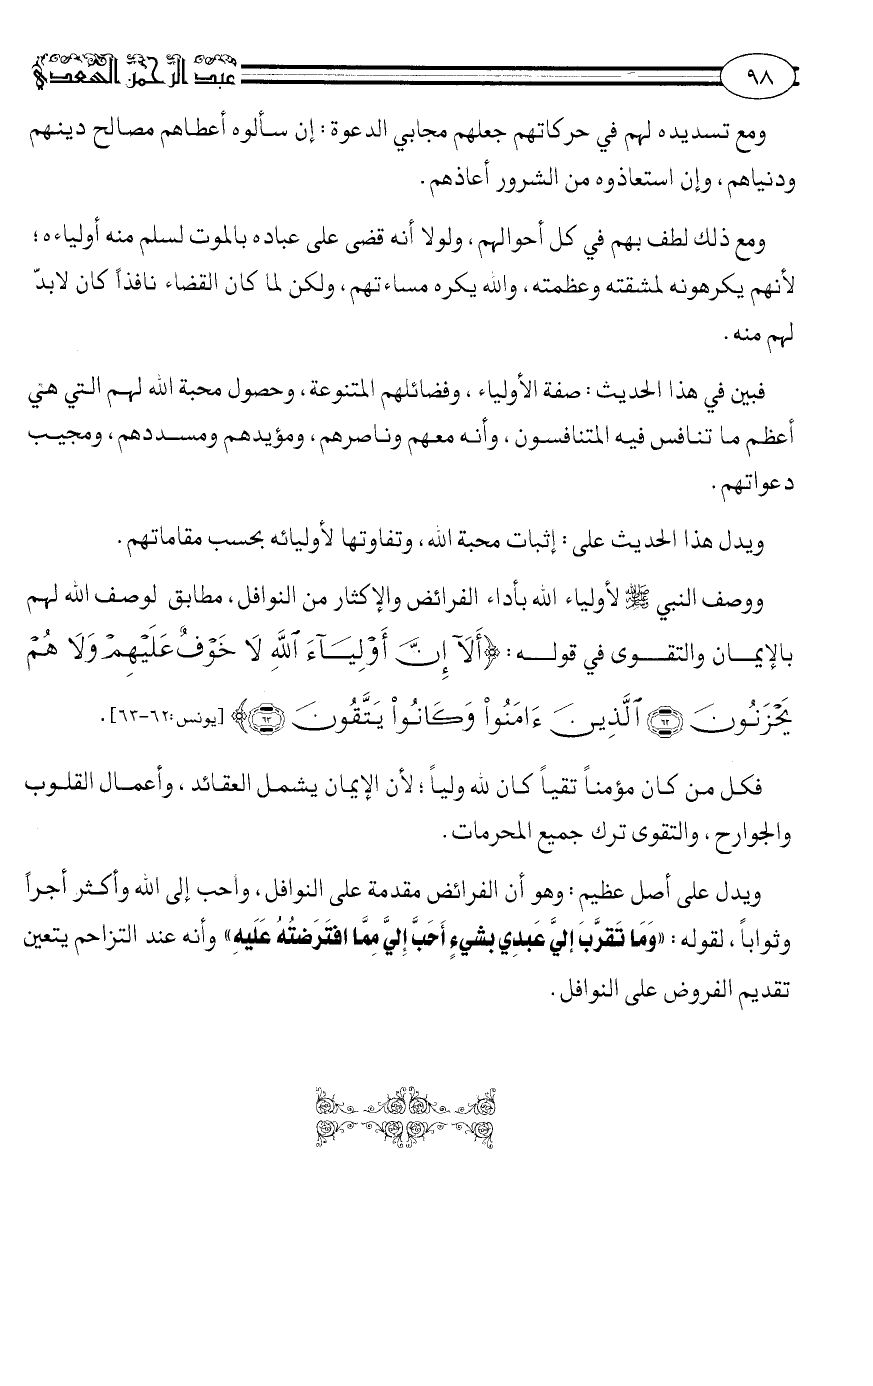 ٩٨ عبد الرحمن السعدي
ومع تسديده لهم في حركاتهم جعلهم مجابي الدعوة: إن سألوه أعطاهم مصالح دينهم
ودنياهم، وإن استعاذوه من الشرور أعاذهم.
ومع ذلك لطف بهم في كل أحوالهم، ولولا أنه قضى على عباده بالموت لسلم منه أولياءه؛
لأنهم يكرهونه لمشقته وعظمته، والله يكره مساءتهم، ولكن لما كان القضاء نافذاً كان لابدّ
لهم منه.
فبين في هذا الحديث: صفة الأولياء، وفضائلهم المتنوعة، وحصول محبة الله لهم التي هي
أعظم ما تنافس فيه المتنافسون، وأنه معهم وناصرهم، ومؤيدهم ومسددهم، ومجيب
دعواتهم.
ويدل هذا الحديث على: إثبات محبة الله، وتفاوتها لأوليائه بحسب مقاماتهم.
ووصف النبي ﷺ لأولياء الله بأداء الفرائض والإكثار من النوافل، مطابق لوصف الله لهم
بالإيمان والتقوى في قوله: ﴿أَلَآ إِنَّ أَوْلِيَآءَ ٱللَّهِ لَا خَوْفٌ عَلَيْهِمْ وَلَا هُمْ
يَحْزَنُونَ ٦٢ ٱلَّذِينَ ءَامَنُوا۟ وَكَانُوا۟ يَتَّقُونَ ٦٣﴾ [يونس:٦٢-٦٣].
فكل من كان مؤمناً تقياً كان لله ولياً؛ لأن الإيمان يشمل العقائد، وأعمال القلوب
والجوارح، والتقوى ترك جميع المحرمات.
ويدل على أصل عظيم: وهو أن الفرائض مقدمة على النوافل، وأحب إلى الله وأكثر أجراً
وثواباً، لقوله: «وَمَا تَقَرَّبَ إليَّ عَبدِي بشيءٍ أحَبَّ إِليَّ مِمَّا افتَرَضتُهُ عَلَيهِ» وأنه عند التزاحم يتعين
تقديم الفروض على النوافل.